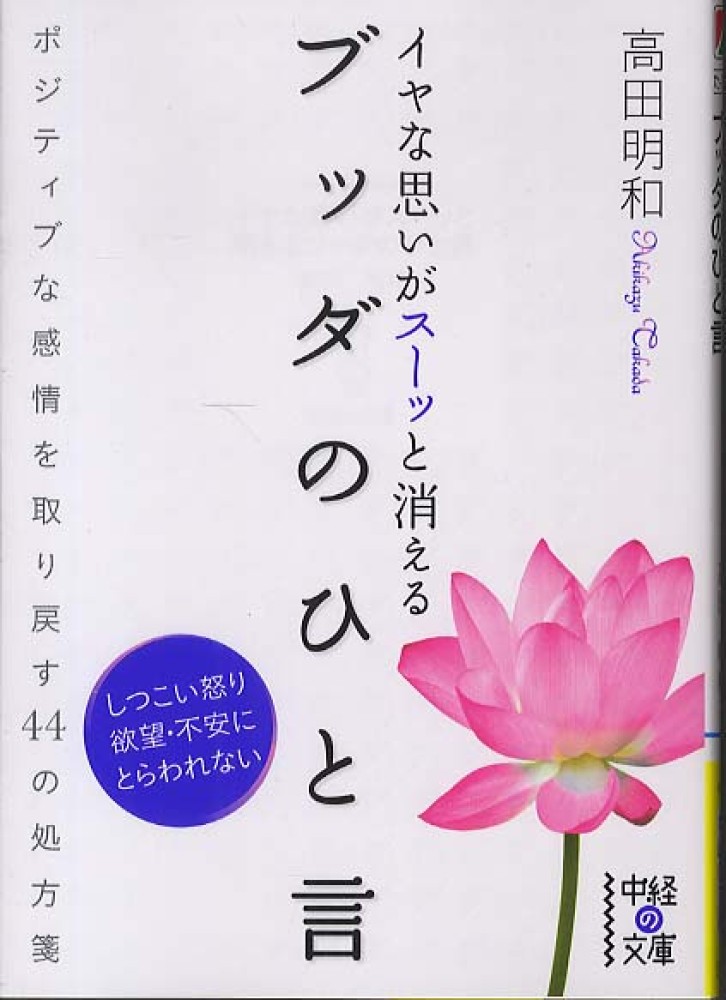 高田明和
Akikazu Takada
イヤな思いがスーッと消える
ブッダのひと言
ポジティブな感情を取り戻す44の処方箋
しつこい怒り
欲望・不安に
とらわれない
中経
の
文庫